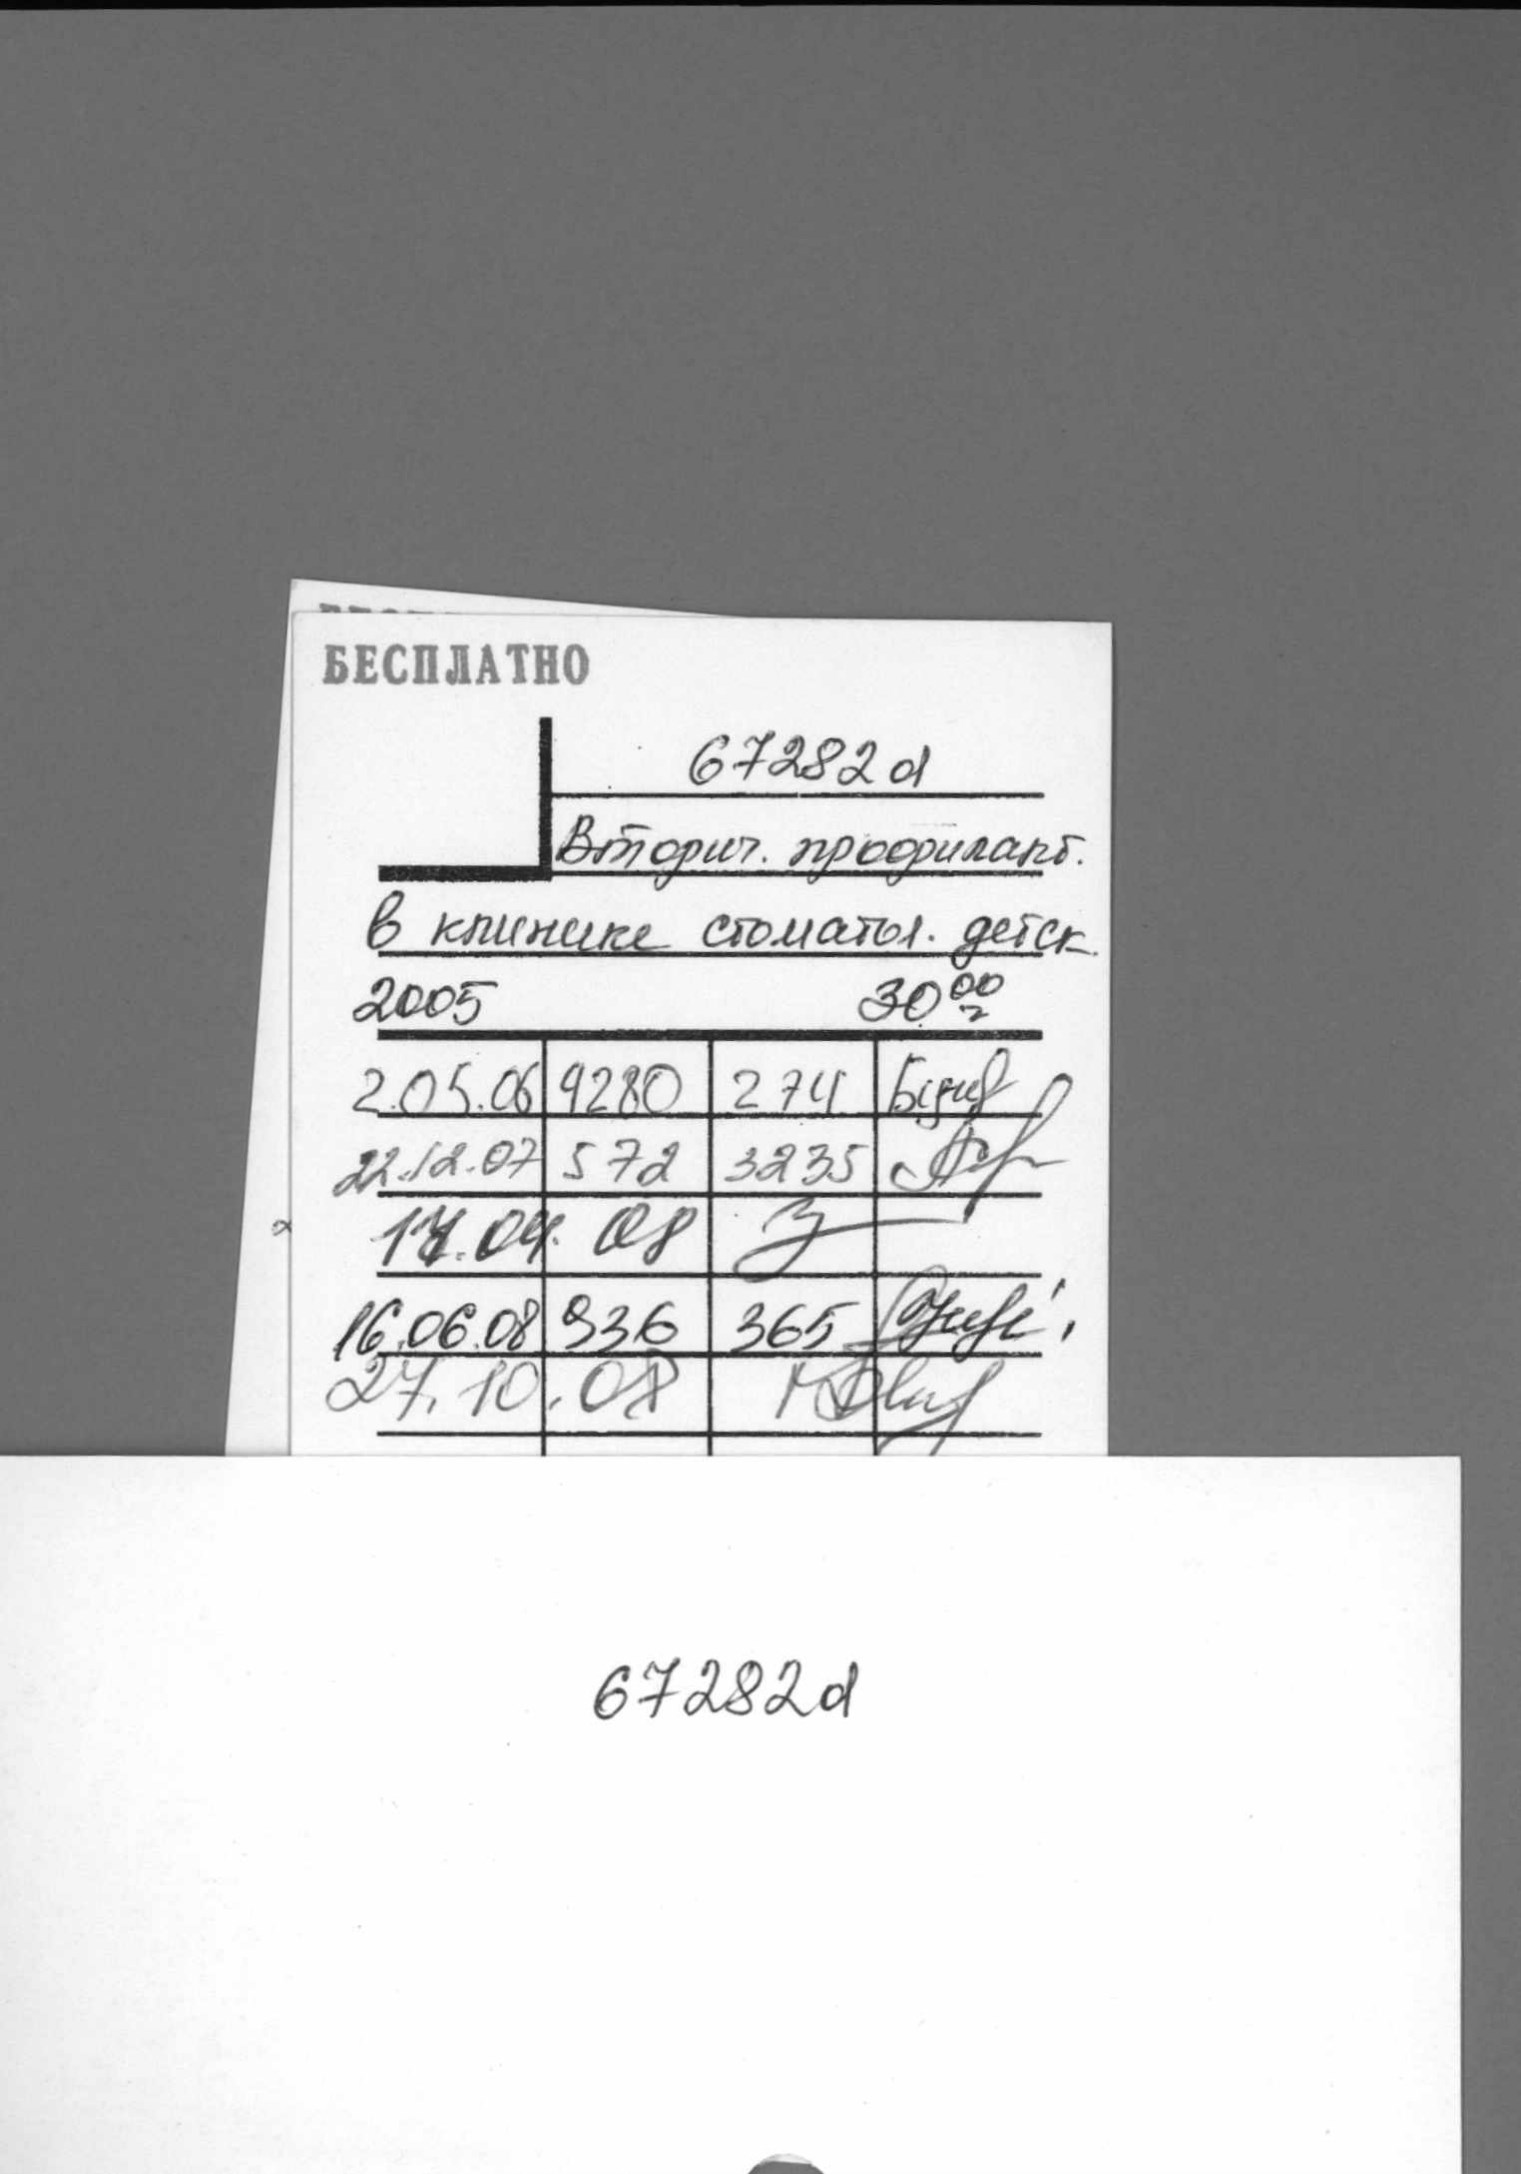 БЕСПЛАТНО
67282d
Вторич. профилакт.
в клинике стоматол. детск.
2005 30 00
2.05.06 9280 274
22.12.07 572 3235
04.08
16.06.08 936 365
27.10.08
67282d